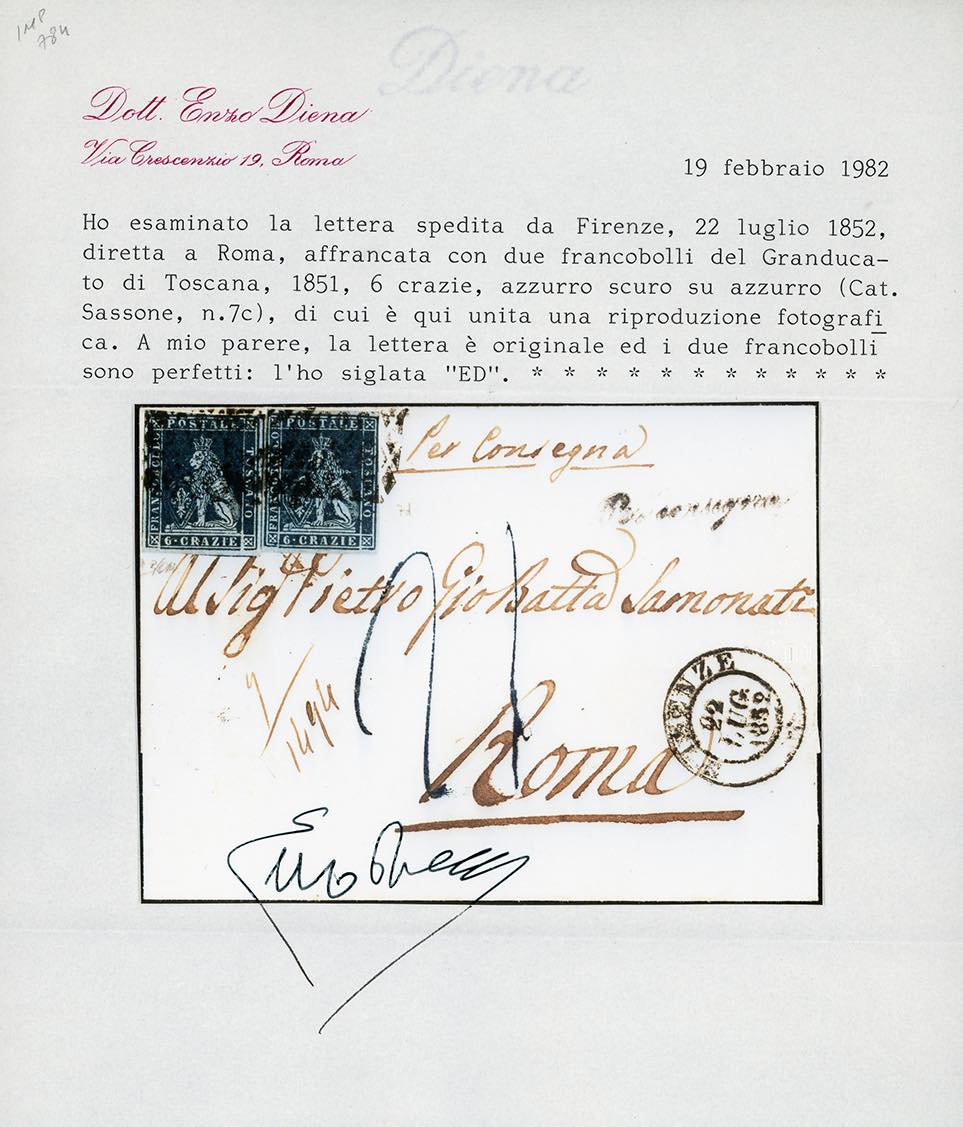 Diena
Dott. Enzo Diena
Via Crescenzio 19, Roma
19 febbraio 1982
Ho esaminato la lettera spedita da Firenze, 22 luglio 1852,
diretta a Roma, affrancata con due francobolli del Granduca-
to di Toscana, 1851, 6 crazie, azzurro scuro su azzurro (Cat.
Sassone, n.7c), di cui è qui unita una riproduzione fotografi
ca. A mio parere, la lettera è originale ed i due francobolli
sono perfetti: l'ho siglata "ED". * * * * * * * * * * * * *
POSTALE POSTALE
FRANCOBOLLO TOSCANO FRANCOBOLLO TOSCANO
6·CRAZIE 6·CRAZIE
Per Consegna
Per consegna
Al Sigr Pietro Gio Batta
Roma
FIRENZE
22
LUG
1852